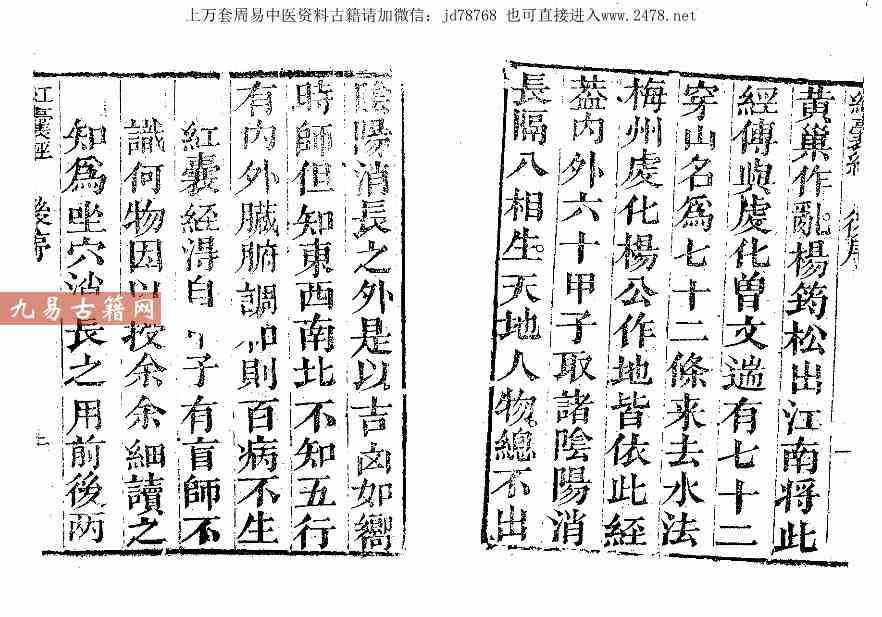 上万套周易中医资料古籍请加微信：jd78768 也可直接进入www.2478.net
紅囊經 後序
黃巢作亂楊筠松出江南將此
經傳與虔化曽文遄有七十二
穿山名為七十二條来去水法
梅州虔化楊公作地皆依此經
蓋内外六十甲子取諸陰陽消
長隔八相生天地人物總不出
一
陰陽消長之外是以吉凶如嚮
時師但知東西南北不知五行
有内外臟腑調和則百病不生
紅囊經得自 子有盲師不
識何物因以授余余細讀之
知為坐穴消長之用前後兩
紅囊經 後序
九易古籍网